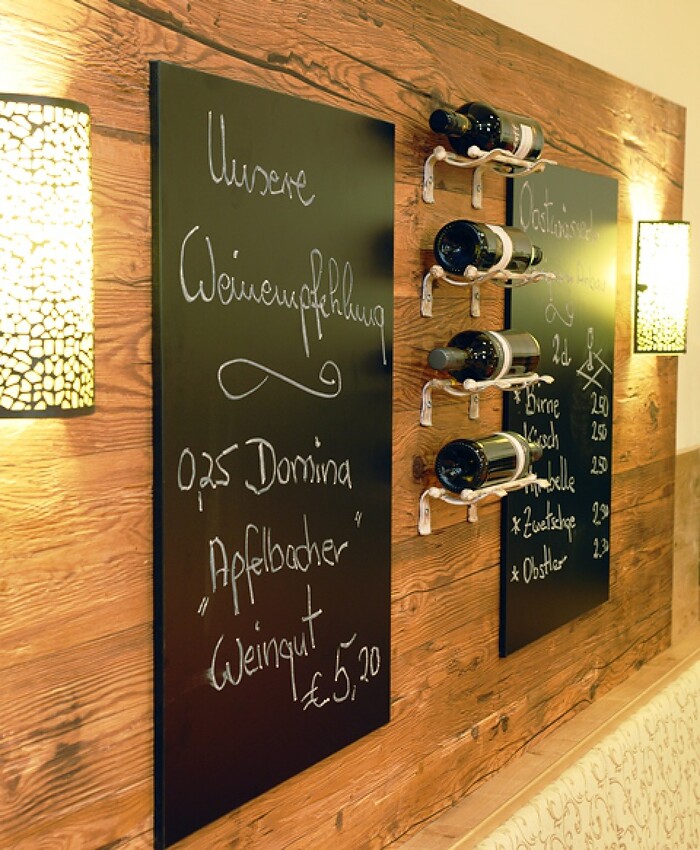 Unsere
Weinempfehlung
0,25 Domina
„Apfelbacher"
Weingut
€ 5,20
2cl
* Birne 2,50
Kirsch 2,50
Mirabelle 2,50
* Zwetschge
* Obstler